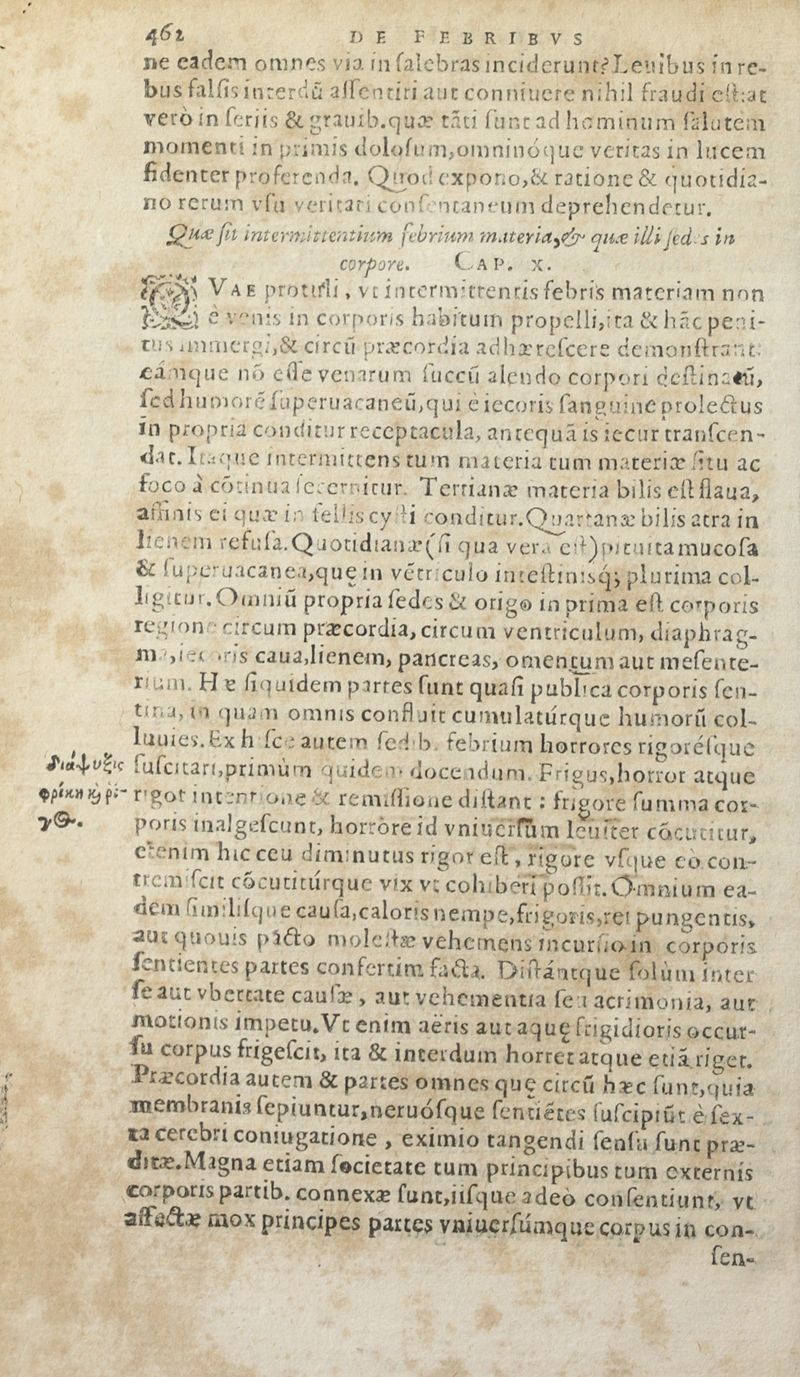 462 DE FEBRIBVS
ne eadem omnes via in ſalebras inciderunt? Leuibus in re-
bus falſis interdū aſſentiri aut conniuere nihil fraudi eſt: at
verò in ſeriis & grauib. quæ tāti ſunt ad hominum ſalutem
momenti in primis doloſum, omninóque veritas in lucem
fidenter proferenda. Quod expono, & ratione & quotidia-
no rerum vſu veritati conſentaneum deprehendetur.
Quæ ſit intermittentium febrium materia, & quæ illi ſedes in
corpore. CAP. X.
QVAE protuli, vt intermittentis febris materiam non
è venis in corporis habitum propelli, ita & hāc peni-
tus immergi, & circū præcordia adhæreſcere demonſtrant:
eámque nō eſſe venarum ſuccū alendo corpori deſtinatū,
ſed humorē ſuperuacaneū, qui è iecoris ſanguine prolectus
in propria conditur receptacula, antequā is iecur tranſcen-
dat. Itaque intermittens tum materia tum materiæ ſitu ac
foco à cōtinua ſecernitur. Tertianæ materia bilis eſt flaua,
affinis ei quæ in fellis cyſti conditur. Quartanæ bilis atra in
lienem refuſa. Quotidianæ (ſi qua vera eſt) pituita mucoſa
& ſuperuacanea, quę in vētriculo inteſtinisq; plurima col-
ligitur. Omniū propria ſedes & origo in prima eſt corporis
regione circum præcordia, circum ventriculum, diaphrag-
ma, iecoris caua, lienem, pancreas, omentum aut meſente-
rium. Hæ ſiquidem partes ſunt quaſi publica corporis ſen-
tina, in quam omnis confluit cumulatúrque humorū col-
luuies. Ex hiſce autem ſedib. febrium horrores rigoréſque
διάψυξις ſuſcitari, primùm quidem docendum. Frigus, horror atque
φρίκη κὶ ρί- rigor intenſione & remiſſione diſtant: frigore ſumma cor-
γος. poris inalgeſcunt, horrore id vniuerſum leuiter cōcutitur,
etenim hic ceu diminutus rigor eſt, rigore vſque eò con-
tremiſcit cōcutitúrque vix vt cohiberi poſſit. Omnium ea-
dem ſimiliſque cauſa, caloris nempe, frigoris, rei pungentis,
aut quouis pacto moleſtæ vehemens incurſio in corporis
ſentientes partes confertim facta. Diſtántque ſolùm inter
ſe aut vbertate cauſæ, aut vehementia ſeu acrimonia, aut
motionis impetu. Vt enim aëris aut aquę frigidioris occur-
ſu corpus frigeſcit, ita & interdum horret atque etiā riget.
Præcordia autem & partes omnes quę circū hæc ſunt, quia
membranis ſepiuntur, neruóſque ſentiētes ſuſcipiūt è ſex-
ta cerebri coniugatione, eximio tangendi ſenſu ſunt præ-
ditæ. Magna etiam ſocietate tum principibus tum externis
corporis partib. connexæ ſunt, iiſque adeò conſentiunt, vt
affectæ mox principes partes vniuerſúmque corpus in con-
ſen-